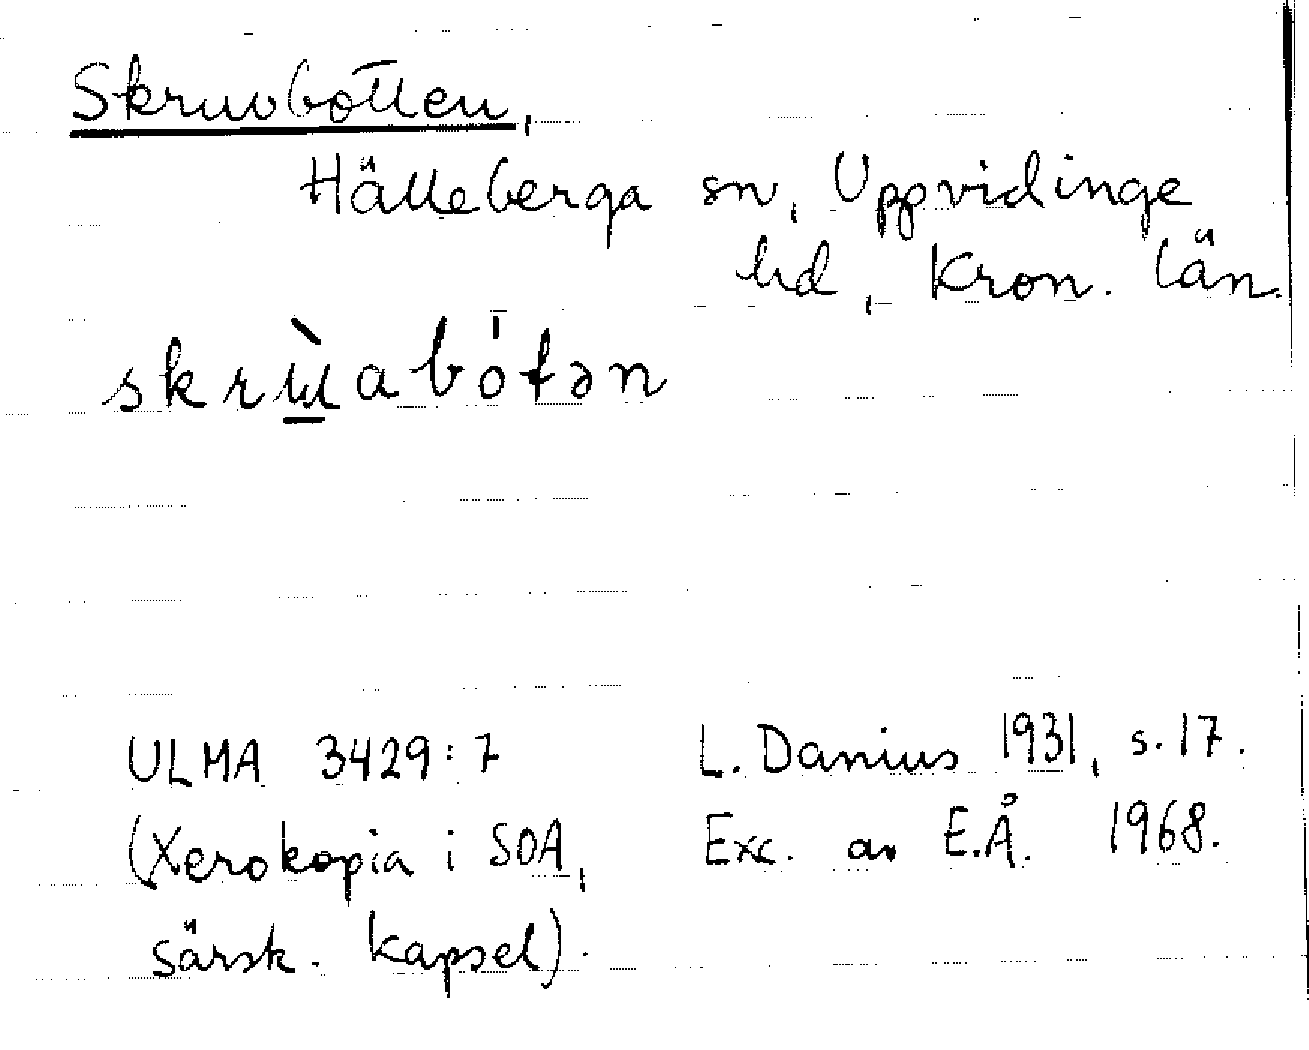 Skruvbotten,
Hälleberga sn, Uppvidinge
hd, Kron. län.
skrɯ̀abótən
ULMA 3429:7 L. Danius 1931, s. 17.
(Xerokopia i SOA, Exc. av E.Å. 1968.
särsk. kapsel).